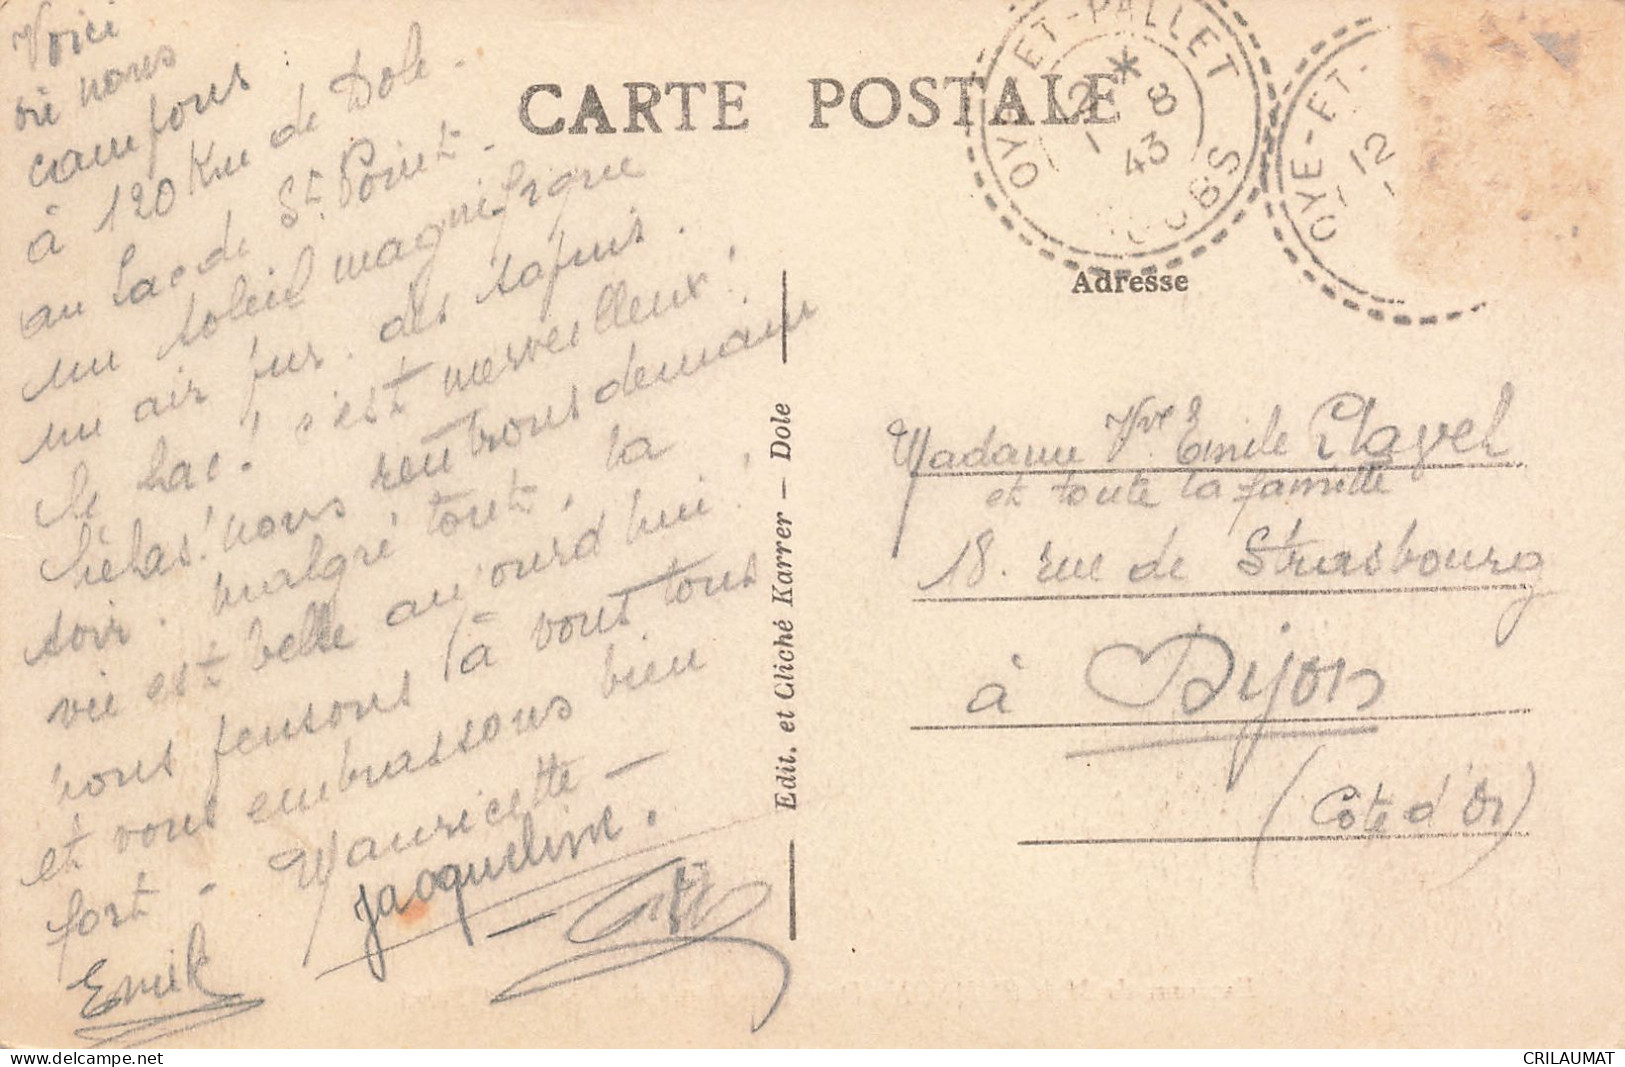 Voici
où nous
campons
à 120 Km de Dole.
au Lac de St Point.
un soleil magnifique
un air pur. des sapins.
le lac! c'est merveilleux!
hélas! nous rentrons demain
soir. malgré tout, la
vie est belle aujourd'hui!
nous pensons à vous tous
et vous embrassons bien
fort - Mauricette -
Jacqueline.
Emile
CARTE POSTALE
OYE-ET-PALLET
12 *
1 8
43
DOUBS
OYE-ET-
12
Adresse
Edit. et Cliché Karrer — Dole
Madame Vve Emile Clavel
et toute la famille
18. rue de Strasbourg
à Dijon
(Côte d'Or)
CRILAUMAT